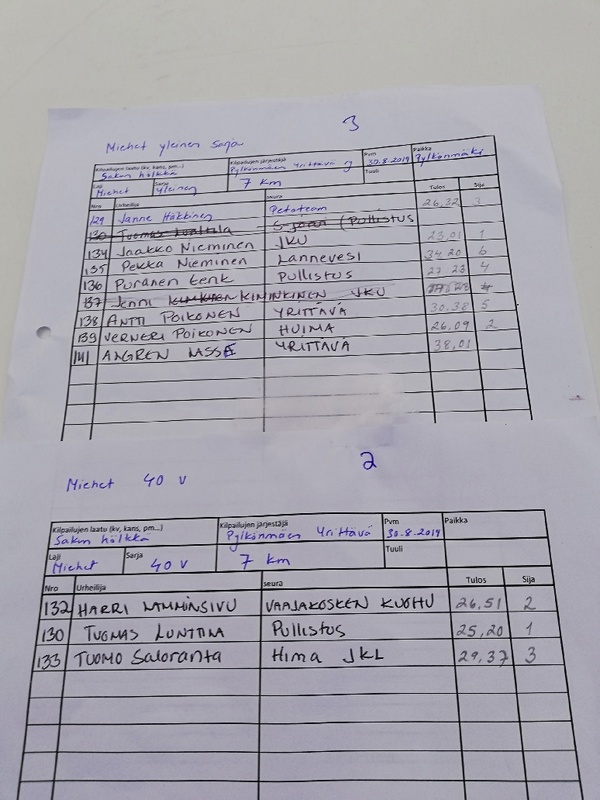 3
Miehet yleinen sarja
Kilpailujen laatu (kv, kans, pm...) Kilpailujen järjestäjä Pvm Paikka
Sakun hölkkä Pylkönmäen Yrittävä ry 30.8.2019 Pylkönmäki
Laji Sarja Tuuli
Miehet Yleinen 7 km
Nro Urheilija seura Tulos Sija
129 Janne Häkkinen Petoteam 26,32 3
130 Tuomas (Pullistus
134 Jaakko Nieminen JKU 23,01 1
135 Pekka Nieminen Lannevesi 34,20 6
136 Puranen Eenk Pullistus 27 23 4
137 Jenni KIMINKINEN JKU
138 ANTTI POIKONEN YRITTÄVÄ 30,38 5
139 VERNERI POIKONEN HUIMA 26,09 2
141 ANGREN LASSE YRITTÄVÄ 38,01
2
Miehet 40 v
Kilpailujen laatu (kv, kans, pm...) Kilpailujen järjestäjä Pvm Paikka
Sakun hölkkä Pylkönmäen Yrittävä 30.8.2019
Laji Sarja Tuuli
Miehet 40 v 7 km
Nro Urheilija seura Tulos Sija
132 HARRI LAMMINSIVU VAAJAKOSKEN KUOHU 26,51 2
130 TUOMAS LUNTTILA Pullistus 25,20 1
133 TUOMO Saloranta Hima JKL 29,37 3